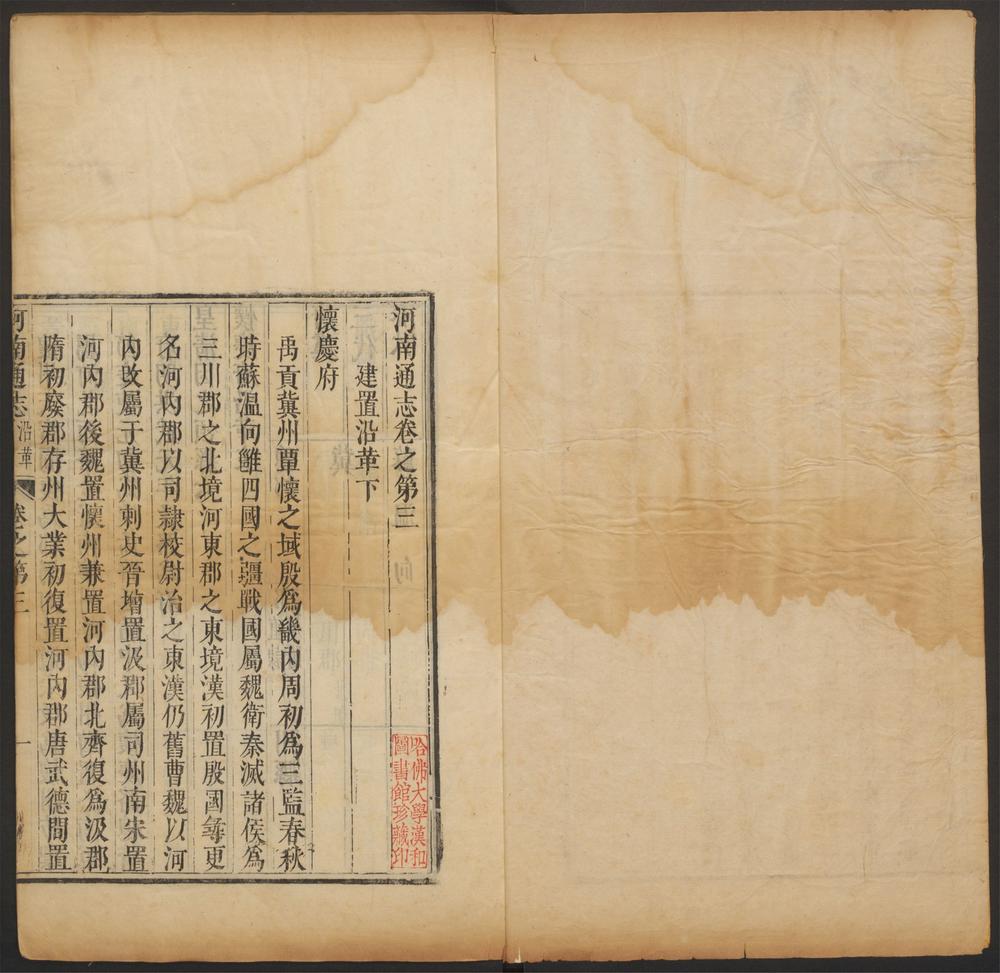 河南通志卷之第三
建置沿革下
懷慶府
禹貢冀州覃懷之域殷爲畿內周初爲三監春秋
時蘇温向雝四國之疆戰國屬魏衛秦滅諸侯爲
三川郡之北境河東郡之東境漢初置殷國尋更
名河內郡以司隸校尉治之東漢仍舊曹魏以河
內改屬于冀州刺史晉增置汲郡屬司州南宋置
河內郡後魏置懷州兼置河內郡北齊復爲汲郡
隋初廢郡存州大業初復置河內郡唐武德間置
河南通志 沿革 卷之第三 一
哈佛大學漢和
圖書館珍藏印